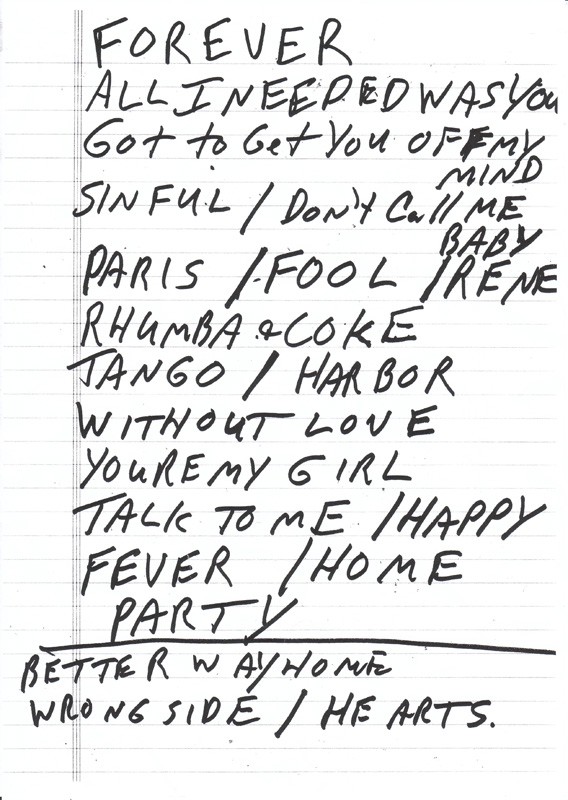 FOREVER
ALL I NEEDED WAS YOU
Got to Get You OFF MY
MIND
SINFUL / Don't Call ME
BABY
PARIS / FOOL / RENE
RHUMBA & COKE
TANGO / HARBOR
WITHOUT LOVE
YOUREMY GIRL
TALK TO ME / HAPPY
FEVER / HOME
PARTY
BETTER WAY HOME
WRONG SIDE / HEARTS.